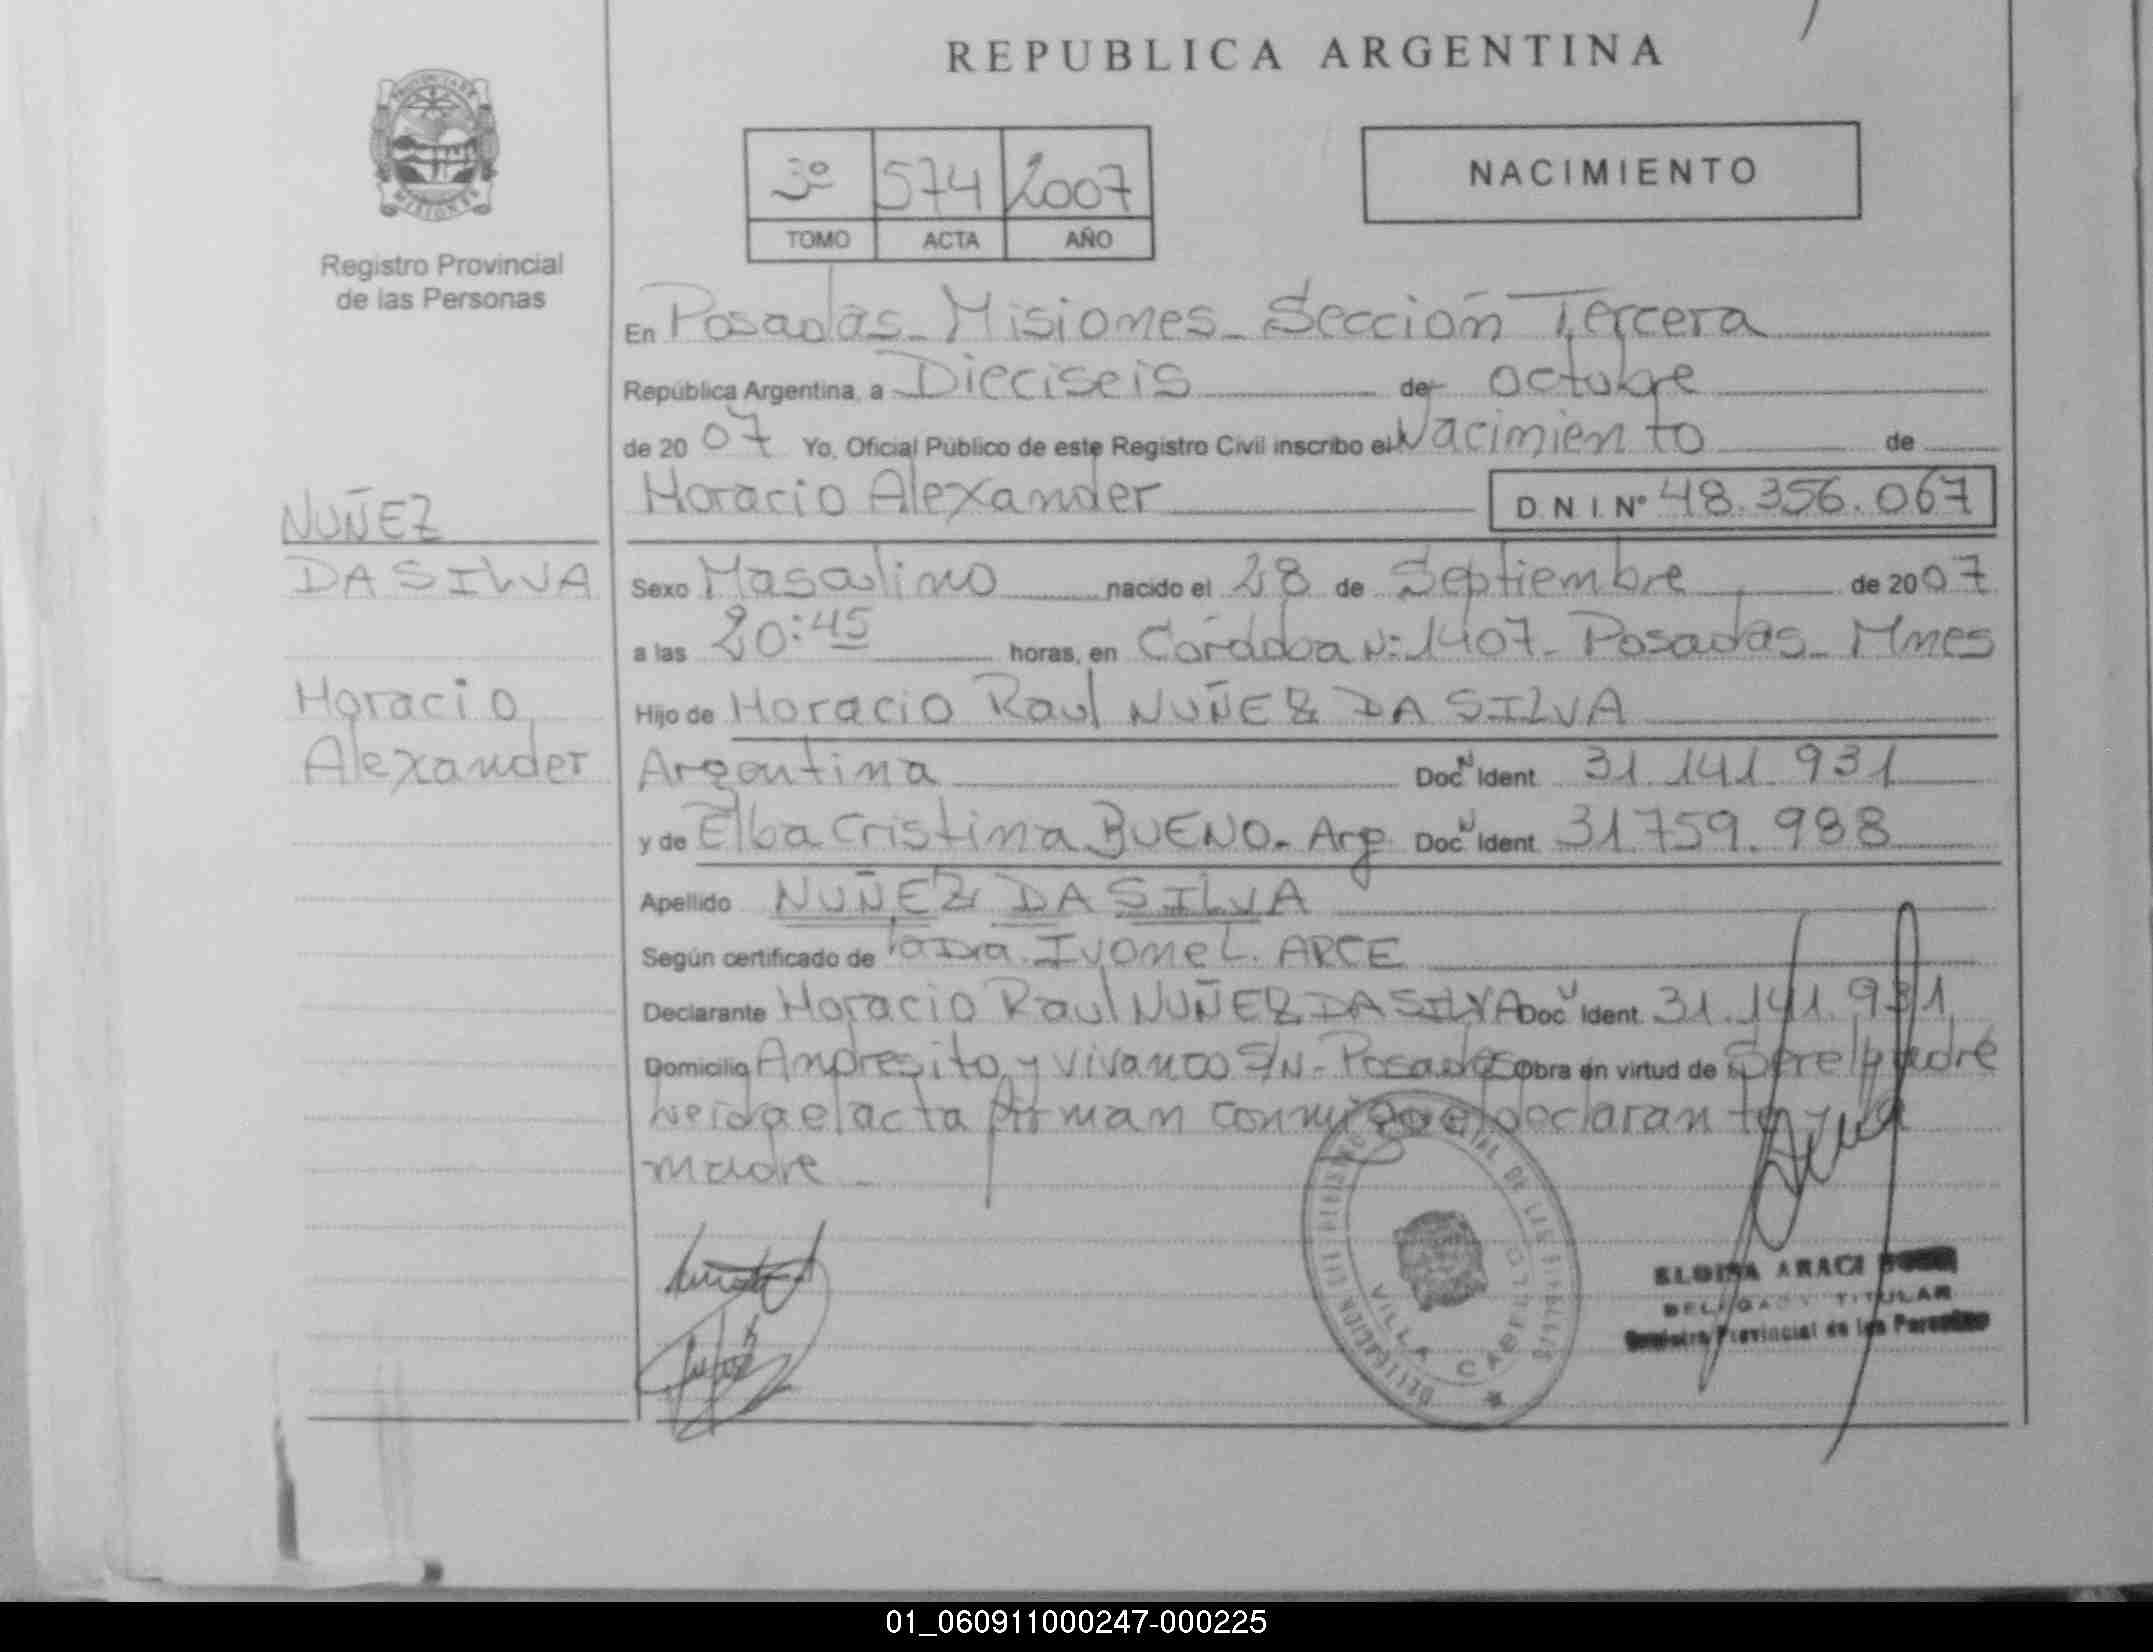 REPUBLICA ARGENTINA
PROVINCIA DE
MISIONES
Registro Provincial
de las Personas
3º 574 2007
TOMO ACTA AÑO
NACIMIENTO
En Posadas - Misiones - Sección Tercera
República Argentina, a Dieciseis de octubre
de 2007 Yo, Oficial Público de este Registro Civil inscribo el Nacimiento de
Horacio Alexander D.N.I. Nº 48.356.067
NUÑEZ
DA SILVA
Horacio
Alexander
Sexo Masculino nacido el 28 de Septiembre de 2007
a las 20:45 horas, en Córdoba Nº 1407 - Posadas - Mnes
Hijo de Horacio Raul NUÑEZ DA SILVA
Argentina Doc N Ident. 31.141.931
y de Elba Cristina BUENO - Arg. Doc N Ident. 31.759.988
Apellido NUÑEZ DA SILVA
Según certificado de la Dra. Ivone L. ARCE
Declarante Horacio Raul NUÑEZ DA SILVA Doc N Ident. 31.141.931
Domicilio Andresito y Vivanco S/N - Posadas Obra en virtud de Ser el padre
Leida el acta firman conmigo el declarante y la
madre
VILLA CABELLO
ELOISA ARACI
DELEGADA TITULAR
Registro Provincial de las Personas
01_060911000247-000225